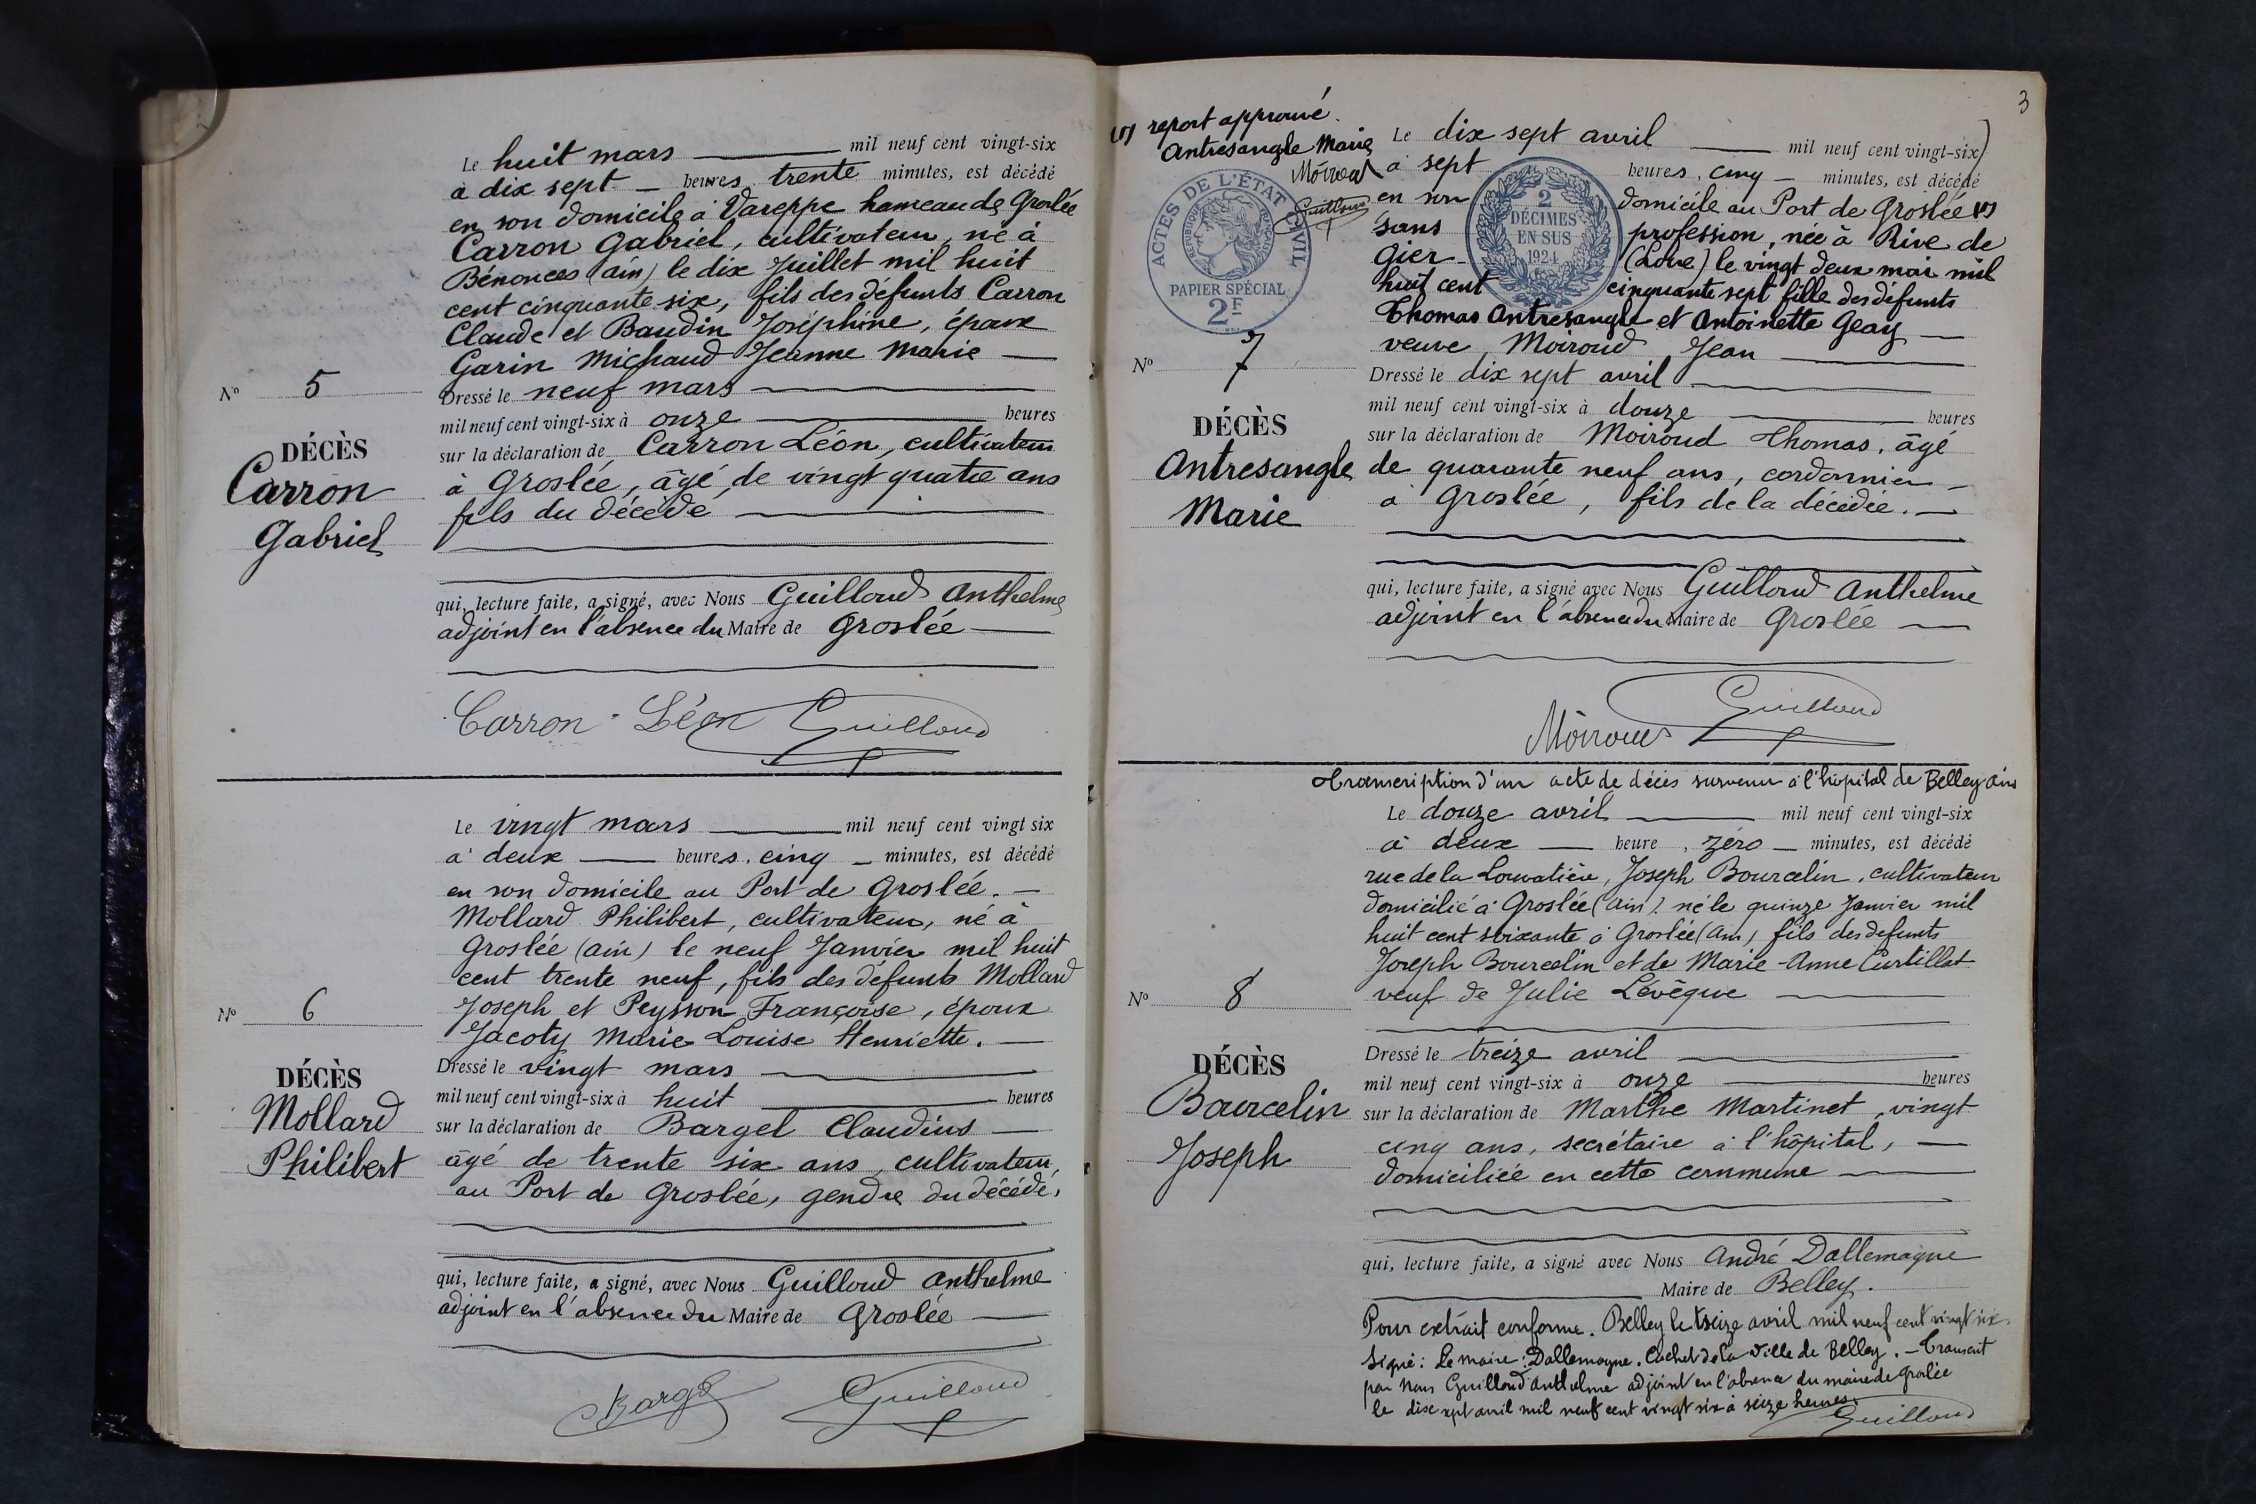 Le huit mars mil neuf cent vingt-six
à dix sept heures trente minutes, est décédé
en son domicile à Vareppe hameau de Groslée
Carron Gabriel, cultivateur, né à
Bénonces (ain) le dix Juillet mil huit
cent cinquante six, fils des défunts Carron
Claude et Baudin Joséphine, époux
Garin Michaud Jeanne Marie
Nº 5
Dressé le neuf mars
mil neuf cent vingt-six à onze heures
DÉCÈS
Carron
Gabriel
sur la déclaration de Carron Léon, cultivateur
à Groslée, âgé de vingt quatre ans
fils du décédé
qui, lecture faite, a signé, avec Nous Guilloud Anthelme
adjoint en l'absence du Maire de Groslée
Carron Léon Guilloud
Le vingt mars mil neuf cent vingt six
à deux heures, cinq minutes, est décédé
en son domicile au Port de Groslée.
Mollard Philibert, cultivateur, né à
Groslée (ain) le neuf Janvier mil huit
cent trente neuf, fils des défunts Mollard
Joseph et Peysson Françoise, époux
Jacoty Marie Louise Henriette.
Nº 6
DÉCÈS
Mollard
Philibert
Dressé le vingt mars
mil neuf cent vingt-six à huit heures
sur la déclaration de Bargel Claudius
âgé de trente six ans, cultivateur,
au Port de Groslée, gendre du décédé,
qui, lecture faite, a signé, avec Nous Guilloud Anthelme
adjoint en l'absence du Maire de Groslée
Bargel Guilloud
3
(1) report approuvé.
Antresangle Marie
Moiroud
Guilloud
ACTES DE L'ÉTAT CIVIL
RÉPUBLIQUE FRANÇAISE
PAPIER SPÉCIAL
2F
2
DÉCIMES
EN SUS
1924
Le dix sept avril mil neuf cent vingt-six
à sept heures, cinq minutes, est décédé
en son domicile au Port de Groslée (1)
sans profession, née à Rive de
Gier (Loire) le vingt deux mai mil
huit cent cinquante sept fille des défunts
Thomas Antresangle et Antoinette Geay
veuve Moiroud Jean
Nº 7
DÉCÈS
Antresangle
Marie
Dressé le dix sept avril
mil neuf cent vingt-six à douze heures
sur la déclaration de Moiroud Thomas, âgé
de quarante neuf ans, cordonnier
à Groslée, fils de la décédée.
qui, lecture faite, a signé avec Nous Guilloud Anthelme
adjoint en l'absence du Maire de Groslée
Moiroud Guilloud
Transcription d'un acte de décès survenu à l'hôpital de Belley ain
Le douze avril mil neuf cent vingt-six
à deux heure, zéro minutes, est décédé
rue de la Louvatière, Joseph Bourcelin, cultivateur
domicilié à Groslée (ain), né le quinze Janvier mil
huit cent soixante à Groslée (ain) fils des defunts
Joseph Bourcelin et de Marie-Anne Curtillat
veuf de Julie Lévêque
Nº 8
DÉCÈS
Bourcelin
Joseph
Dressé le treize avril
mil neuf cent vingt-six à onze heures
sur la déclaration de Marthe Martinet, vingt
cinq ans, secrétaire à l'hôpital,
domiciliée en cette commune
qui, lecture faite, a signé avec Nous André Dallemagne
Maire de Belley.
Pour extrait conforme. Belley le treize avril mil neuf cent vingt six.
Signé: Le maire: Dallemagne. Cachet de la ville de Belley. - Transcrit
par nous Guilloud Anthelme adjoint en l'absence du maire de Groslée
le dix sept avril mil neuf cent vingt six à seize heures.
Guilloud